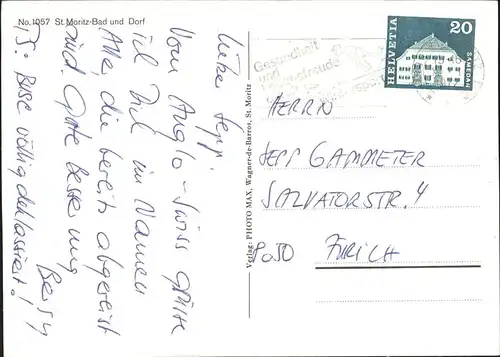 No. 1057 St. Moritz-Bad und Dorf
Lieber Sepp!
Vom Anglo-Swiss grüsse
ich Dich im Namen
Alle, die bereits abgereist
sind. Gute Besserung
PS: Böse völlig deklassiert!
Verlag: PHOTO MAX, Wagner-de-Barros, St. Moritz
Gesundheit
und
HELVETIA
20
SAMEDAN
HERRN
SEPP GAMMETER
SALVATORSTR. 4
8050 ZÜRICH